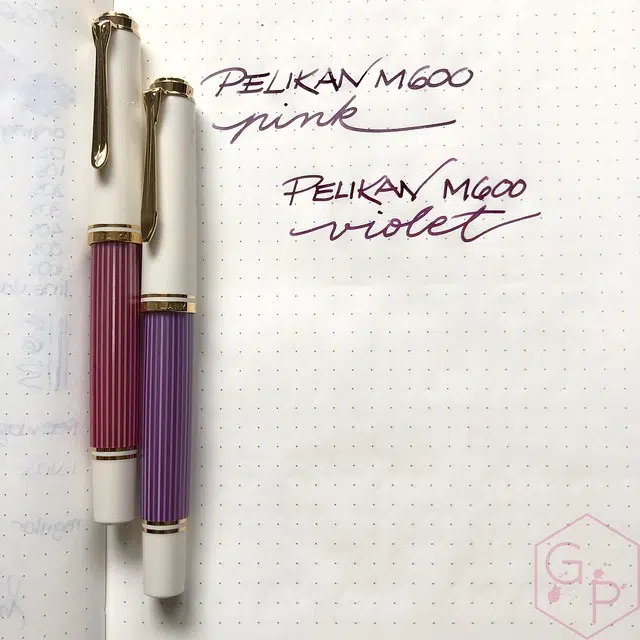 PELIKAN M600
pink
PELIKAN M600
violet
regular
G
P